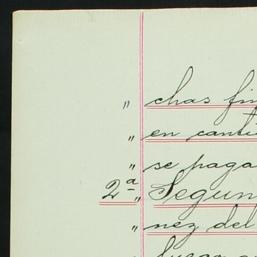 " chas fin
" en canti
" se paga
2ª " Segun
" nez del